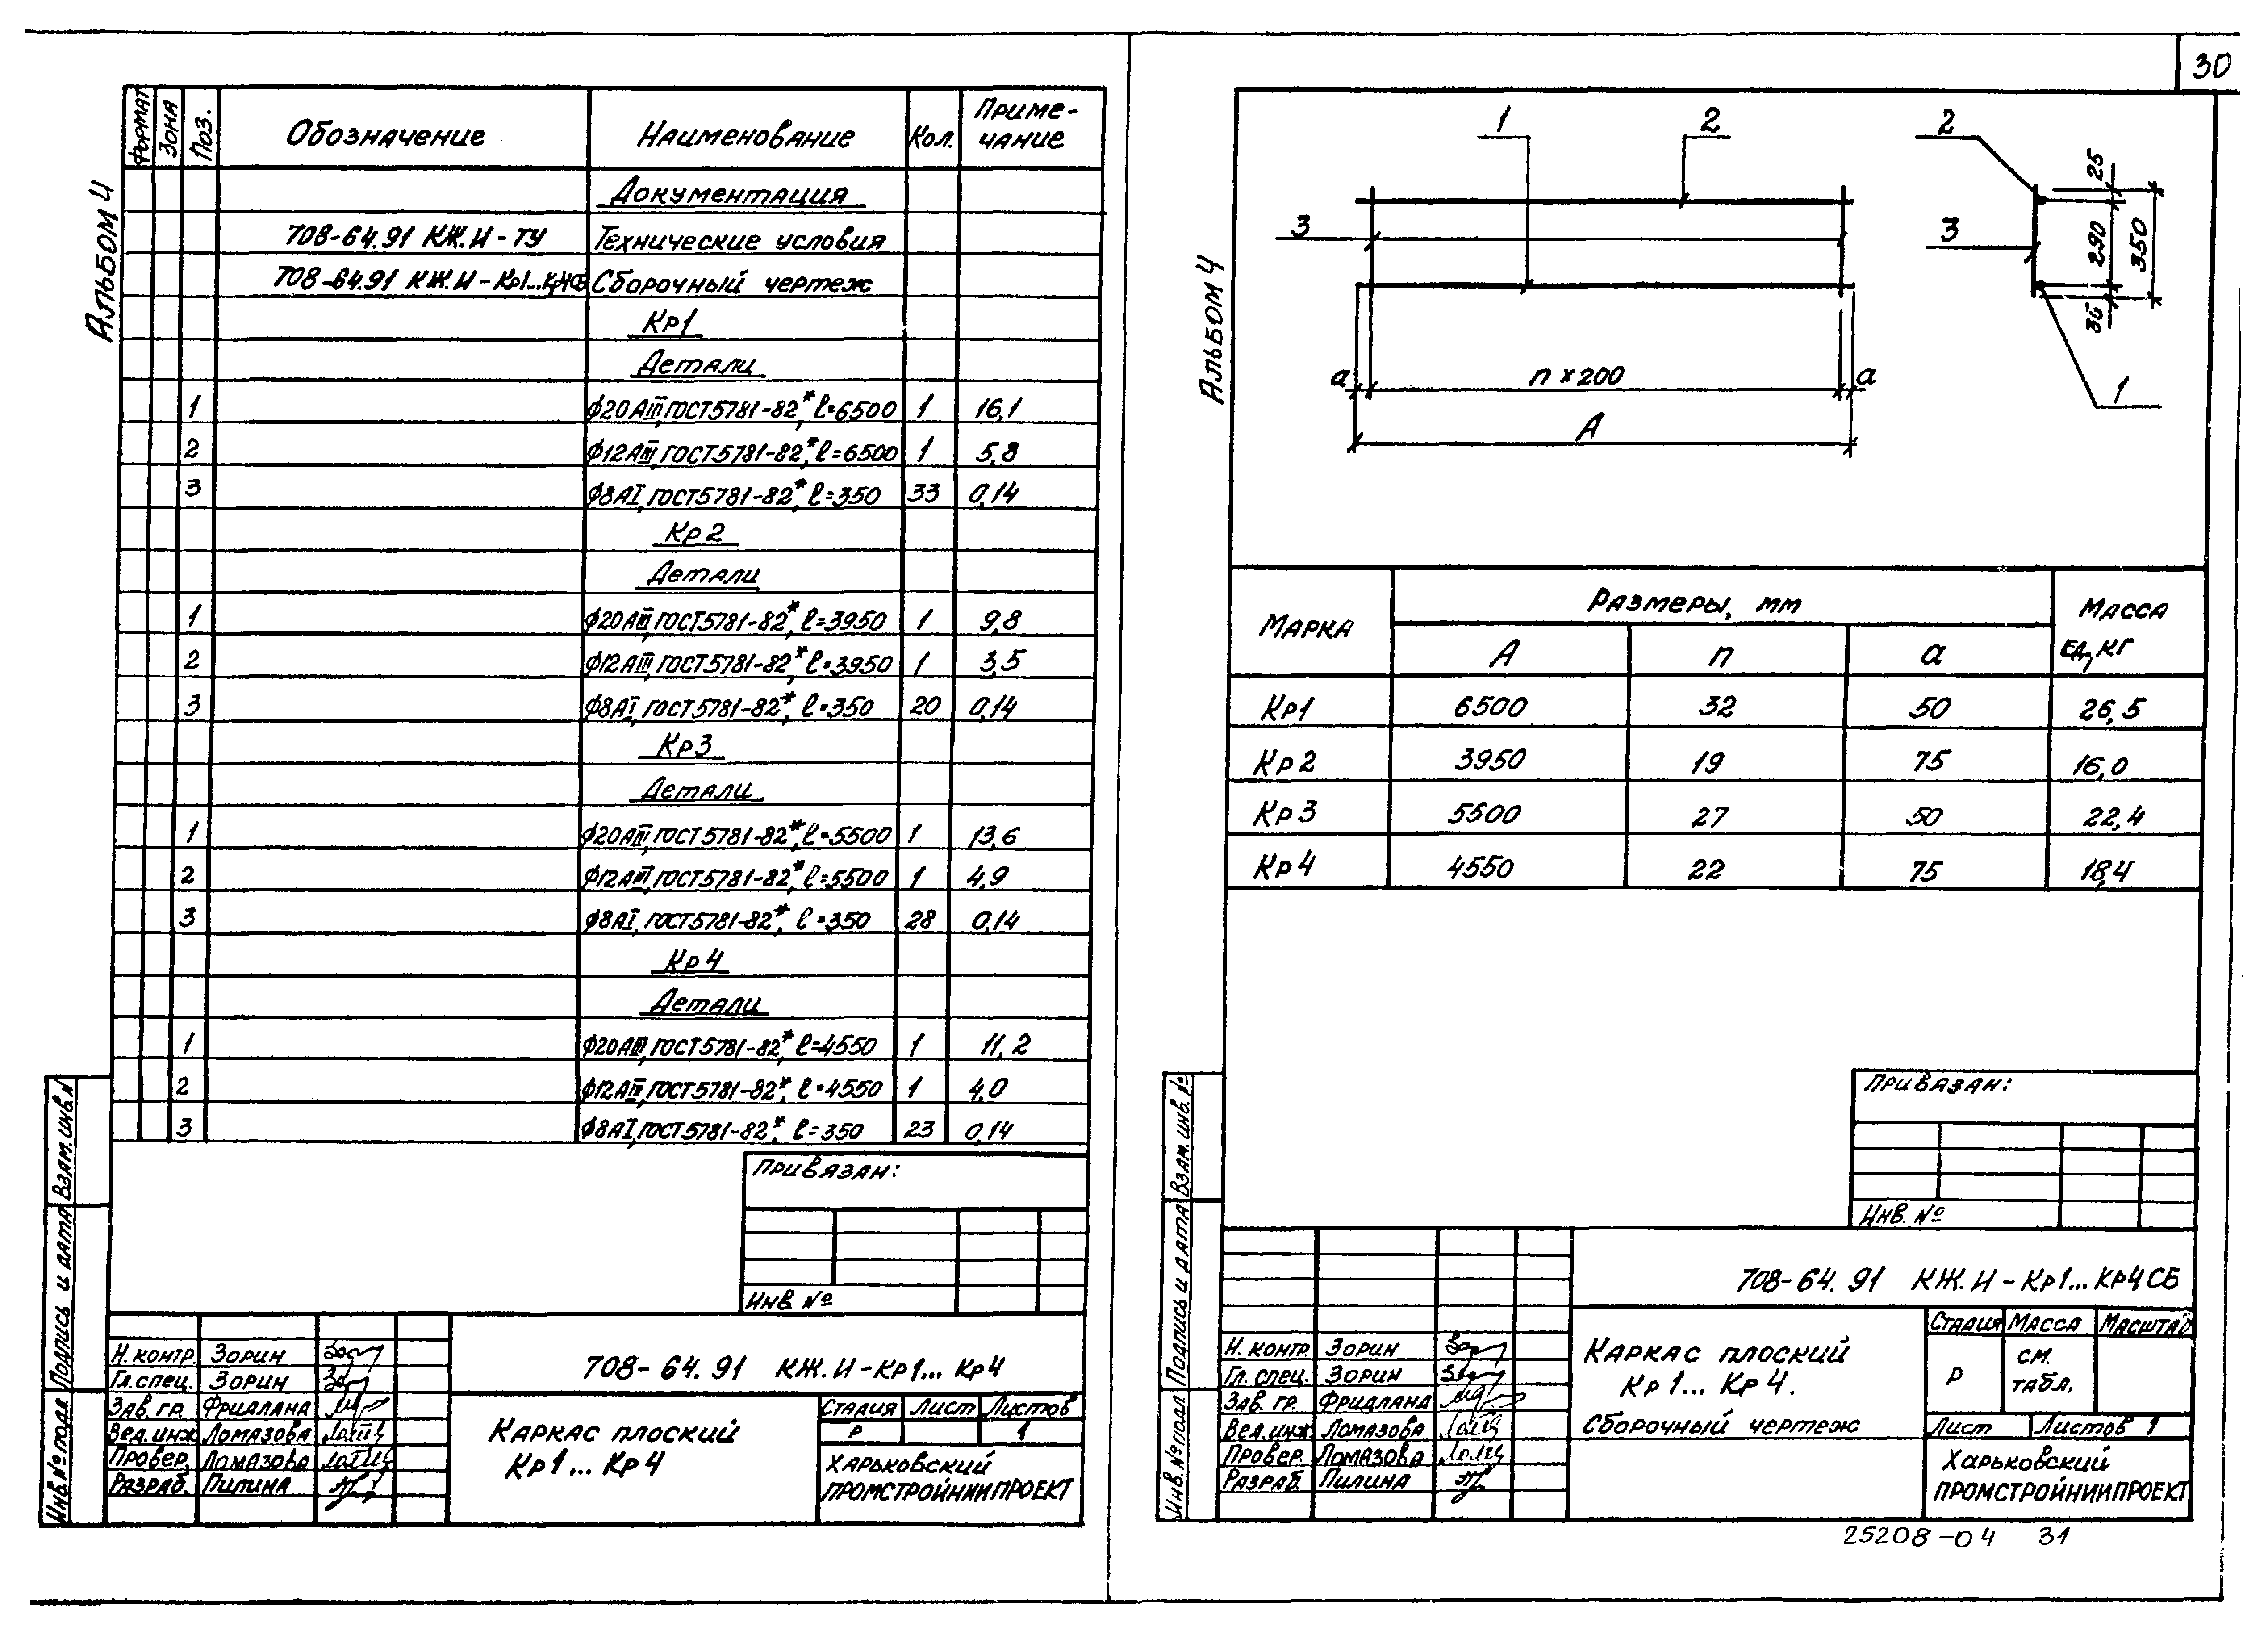 30
Альбом 4
Формат Зона Поз. Обозначение Наименование Кол. Приме-
чание
Документация
708-64.91 КЖ.И-ТУ Технические условия
708-64.91 КЖ.И-Кр1... Сборочный чертеж
Кр1
Детали
1 ф20АIII, ГОСТ5781-82*, ℓ=6500 1 16,1
2 ф12АIII, ГОСТ5781-82*, ℓ=6500 1 5,8
3 ф8АI, ГОСТ5781-82*, ℓ=350 33 0,14
Кр2
Детали
1 ф20АIII, ГОСТ5781-82*, ℓ=3950 1 9,8
2 ф12АIII, ГОСТ5781-82*, ℓ=3950 1 3,5
3 ф8АI, ГОСТ5781-82*, ℓ=350 20 0,14
Кр3
Детали
1 ф20АIII, ГОСТ5781-82*, ℓ=5500 1 13,6
2 ф12АIII, ГОСТ5781-82*, ℓ=5500 1 4,9
3 ф8АI, ГОСТ5781-82*, ℓ=350 28 0,14
Кр4
Детали
1 ф20АIII, ГОСТ5781-82*, ℓ=4550 1 11,2
2 ф12АIII, ГОСТ5781-82*, ℓ=4550 1 4,0
3 ф8АI, ГОСТ5781-82*, ℓ=350 23 0,14
Привязан:
Инв. №
Инв.№ подл. Подпись и дата Взам. инв. №
708-64.91 КЖ.И-Кр1... Кр4
Н. контр. Зорин
Гл. спец. Зорин
Зав. гр. Фридлана
Вед. инж. Ломазова
Провер. Ломазова
Разраб. Пилина
Каркас плоский
Кр1... Кр4
Стадия Лист Листов
Р 1
Харьковский
ПРОМСТРОЙНИИПРОЕКТ
Альбом 4
1 2 2
3 3
25
290
350
35
1
а п×200 а
А
Марка Размеры, мм Масса
ед, кг
А п а
Кр1 6500 32 50 26,5
Кр2 3950 19 75 16,0
Кр3 5500 27 50 22,4
Кр4 4550 22 75 18,4
Привязан:
Инв. №
Инв.№ подл Подпись и дата Взам. инв. №
708-64.91 КЖ.И-Кр1... Кр4СБ
Н. контр. Зорин
Гл. спец. Зорин
Зав. гр. Фридлана
Вед. инж. Ломазова
Провер. Ломазова
Разраб. Пилина
Каркас плоский
Кр1... Кр4.
Сборочный чертеж
Стадия Масса Масштаб
Р см.
табл.
Лист Листов 1
Харьковский
ПРОМСТРОЙНИИПРОЕКТ
25208-04 31